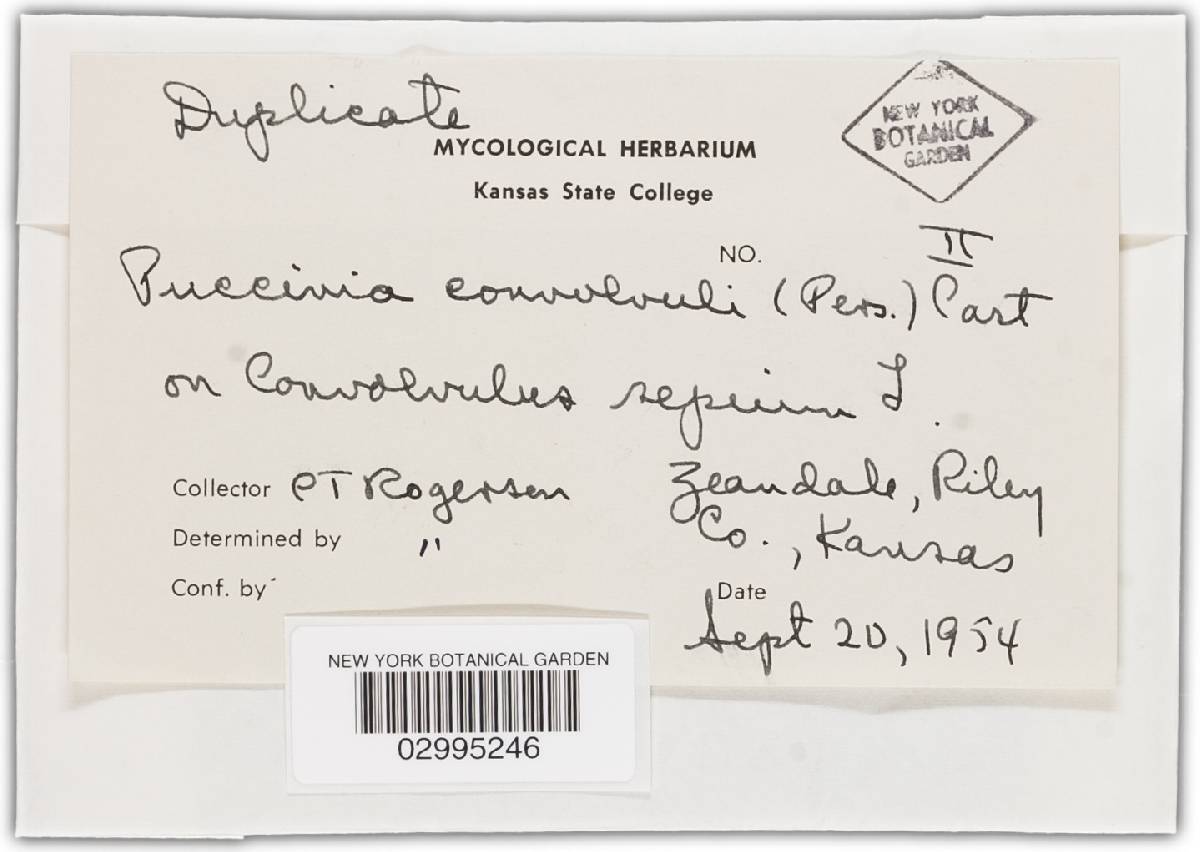 Duplicate
NEW YORK
BOTANICAL
GARDEN
MYCOLOGICAL HERBARIUM
Kansas State College
NO. II
Puccinia convolvuli (Pers.) Cast
on Convolvulus sepium L.
Collector CT Rogerson
Zeandale, Riley
Co., Kansas
Determined by "
Conf. by
Date
Sept 20, 1954
NEW YORK BOTANICAL GARDEN
02995246